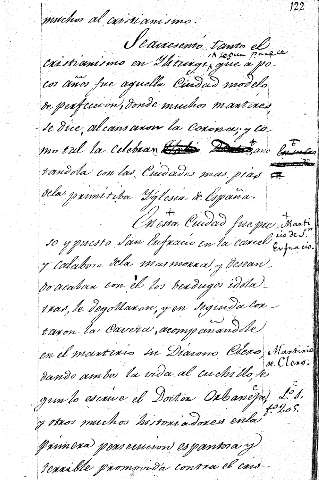 122
muchos al cristianismo.
Se acresentó tanto el
cristianismo en Yliturgi, que a po-
cos años fue aquella Ciudad modelo
de perfeccion, donde muchos martires
se dice, alcansaron la corona; y co-
mo tal la celebran
tandola con las Ciudades mas pias
de la primitiba Yglesia de España.
En esta Ciudad fue pre-
so y puesto San Eufracio en la carcel
y calaboso de la masmorra; y desean-
do acabar con él los berdugos idola-
tras, le degollaron, y en seguida cor-
taron la cavesa, acompañandole
en el martirio su Diacono Clero,
dando ambos la vida al cuchillo, se-
gun lo escrive el Doctor Orbaneja,
y otros muchos historiadores en la
primera persecucion espantosa y
terrible promovida contra el cris-
Marti-
rio de Sn.
Eufracio.
Martirio
de Clero.